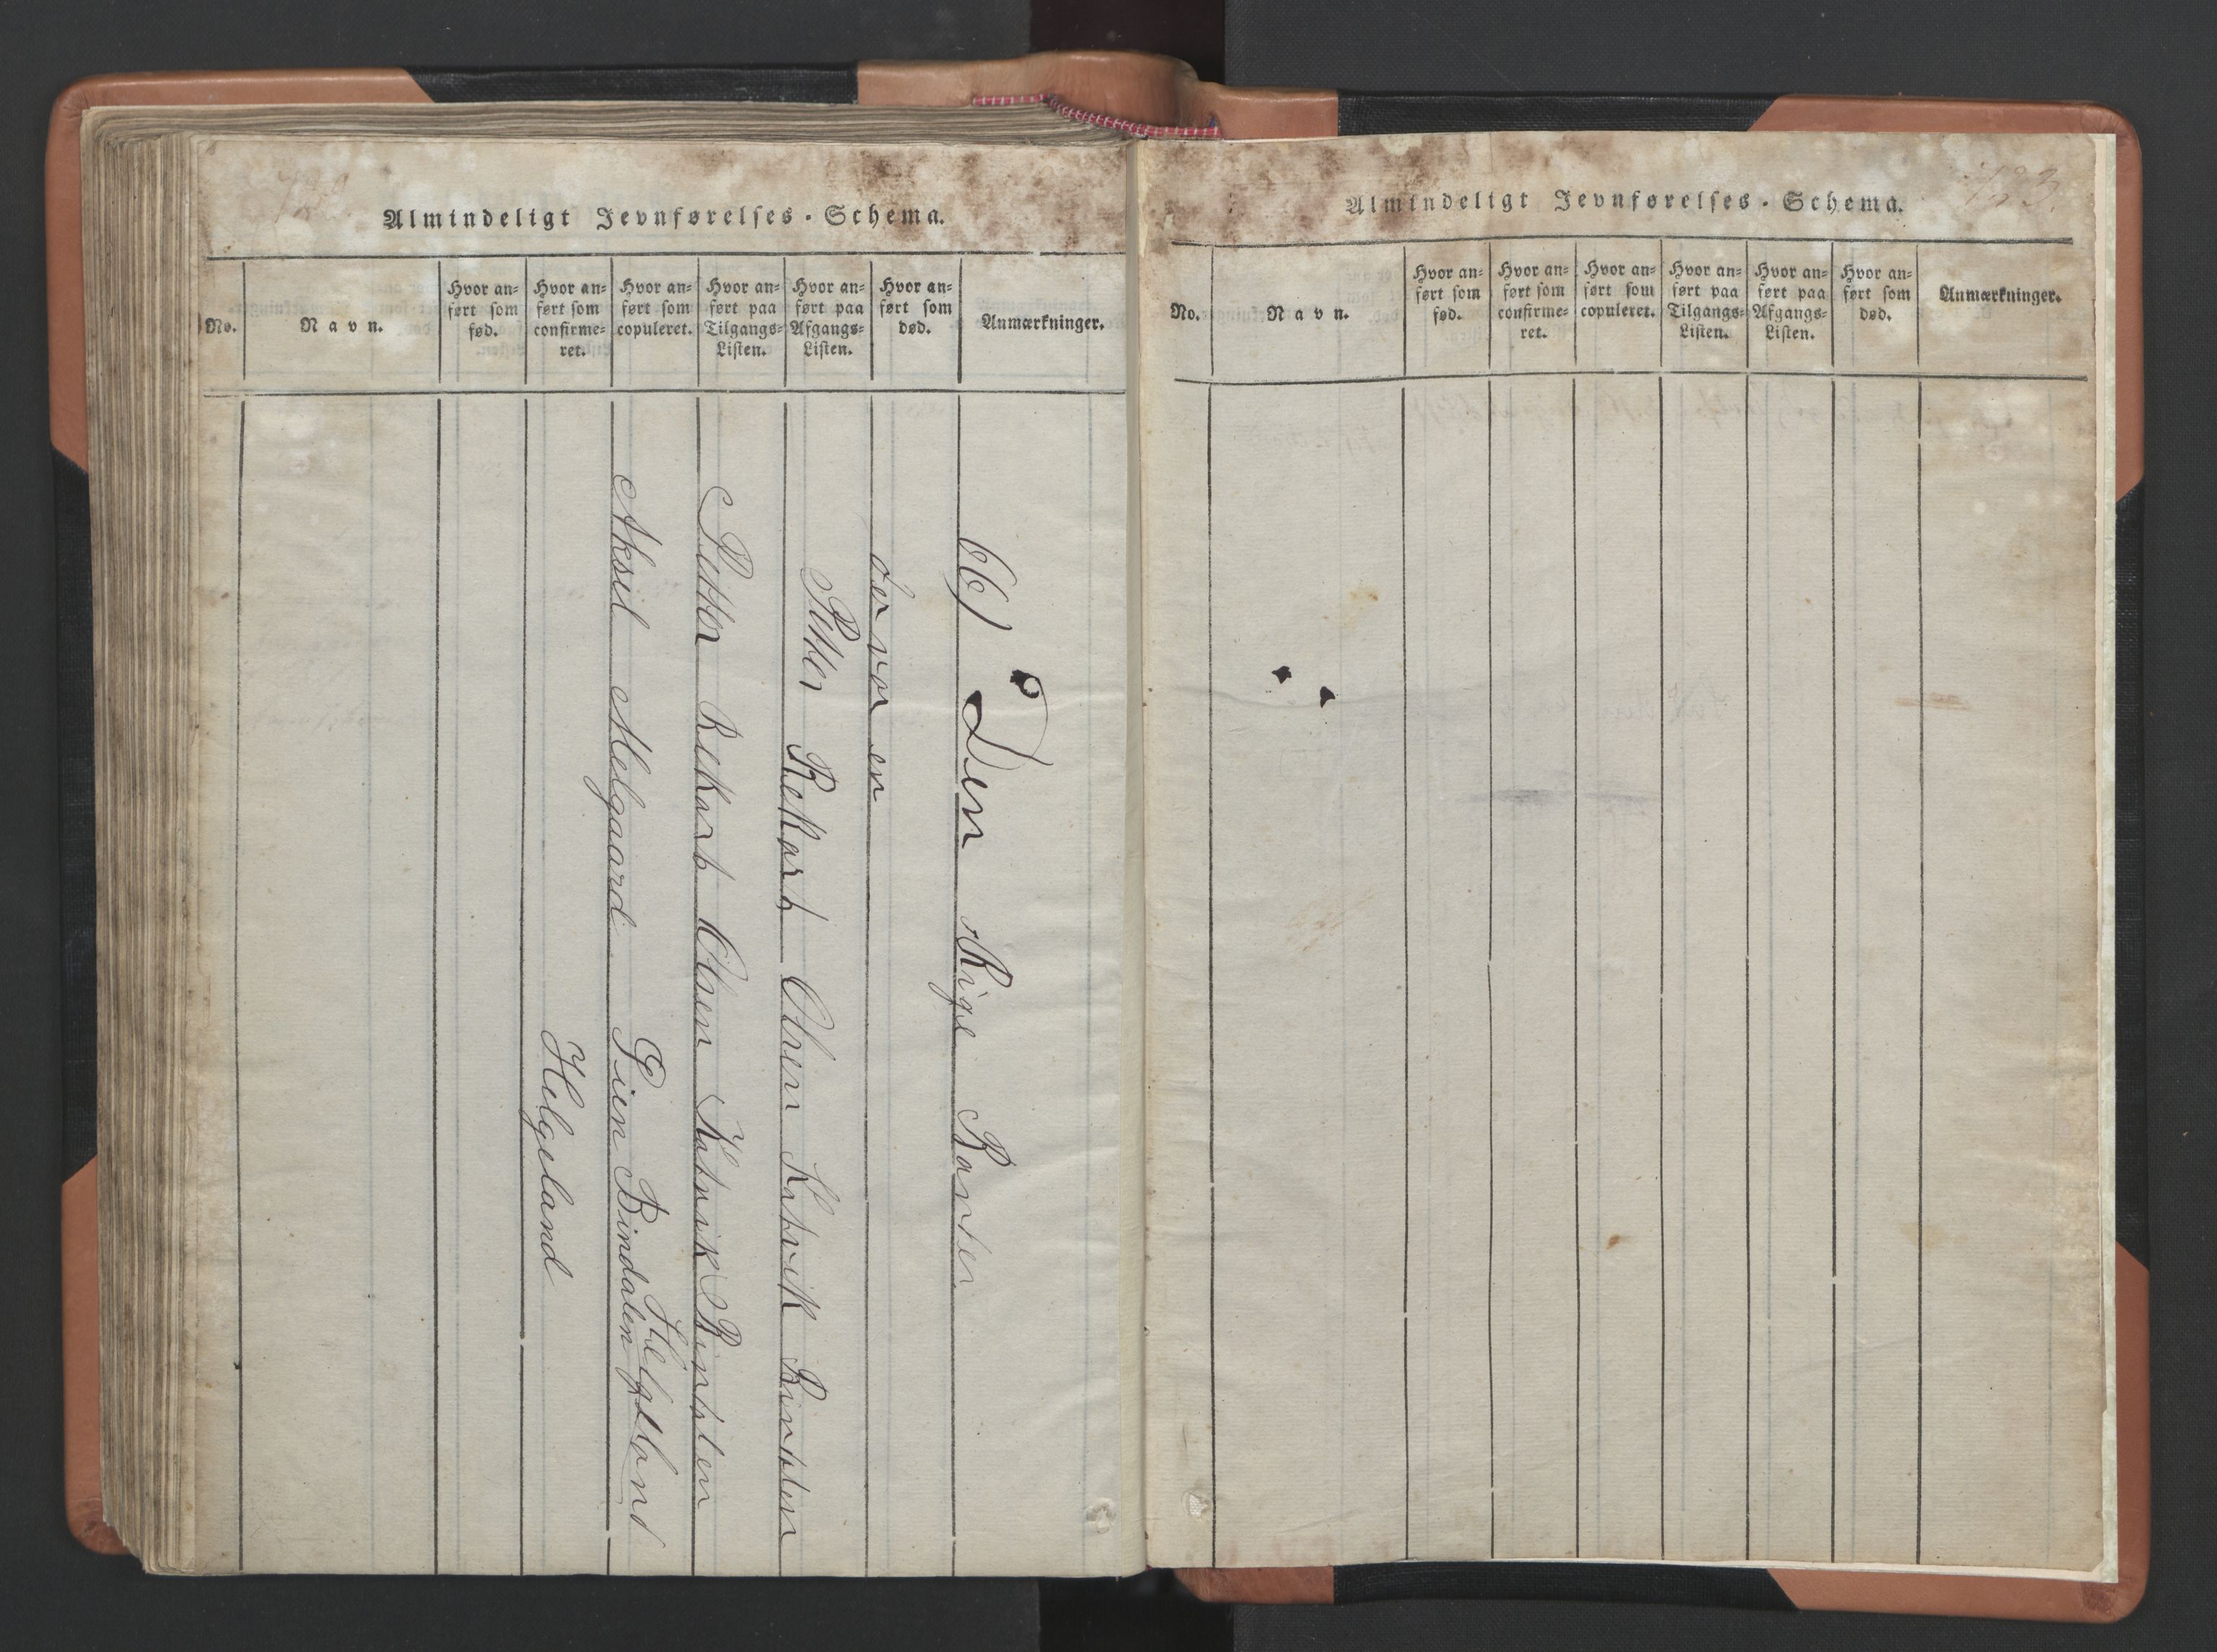 Almindeligt Jevnførelses-Schema.
No.
Navn.
Hvor an-
ført som
fød.
Hvor an-
ført som
confirme-
ret.
Hvor an-
ført som
copuleret.
Hvor an-
ført paa
Tilgangs-
Listen.
Hvor an-
ført paa
Afgangs-
Listen.
Hvor an-
ført som
død.
Anmærkninger.
66) Den Rige
der var en
Petter Rekart Olsen
Petter Rekart Olsen
Aksel Melgaard Bindalen Helgeland
Helgeland
Almindeligt Jevnførelses-Schema.
123.
No.
Navn.
Hvor an-
ført som
fød.
Hvor an-
ført som
confirme-
ret.
Hvor an-
ført som
copuleret.
Hvor an-
ført paa
Tilgangs-
Listen.
Hvor an-
ført paa
Afgangs-
Listen.
Hvor an-
ført som
død.
Anmærkninger.